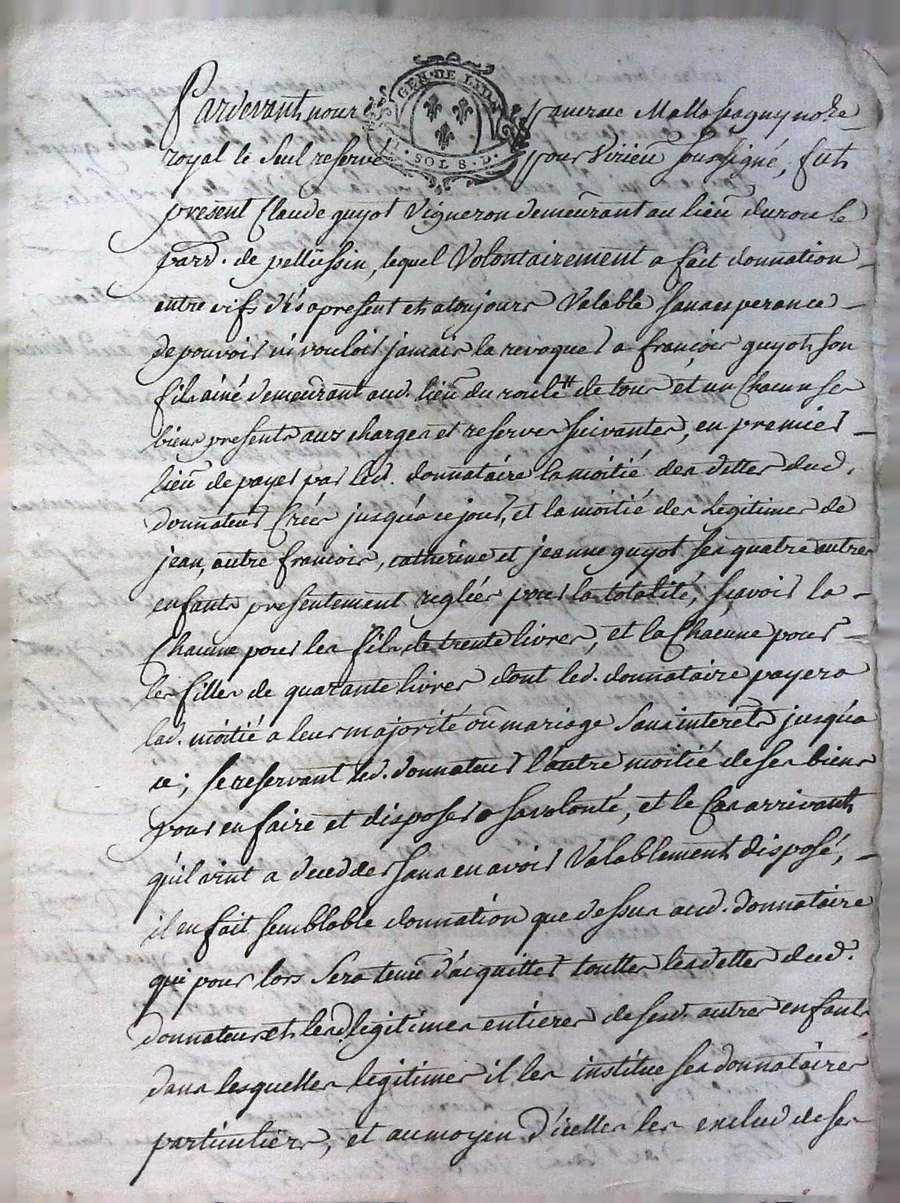 Pardevant nous
GEN. DE LYON
SOL 8. D.
royal le seul reservé pour Virieu soussigné, fut
present Claude guyot Vigneron demeurant au lieu du
parr. de pellussin, lequel Volontairement a fait donnation
entre vifs dès apresent et atoujours Valable sans esperance
de pouvoir ni vouloir jamais la revoquer a françois guyot son
fils ainé demeurant aud. lieu du de tous et un Chacun ses
biens presents aux charges et reserves suivantes, en premier
lieu de payer par led. donnataire la moitié des dettes dud.
donnateur Créés jusqua ce jour, et la moitié des Legitimes de
jean, autre françois, catherine et jeanne guyot ses quatre autres
enfants presentement reglées pour la totalité, sçavoir la
Chacune pour les fils de trente livres, et la Chacune pour
les filles de quarante livres dont led. donnataire payera
lad. moitié a leur majorité ou mariage sans interets jusqua
ce; se reservant led. donnateur l'autre moitié de ses biens
pour en faire et disposer a sa volonté, et le Cas arrivant
qu'il vint a deceder sans en avoir Valablement disposé,
il en fait semblable donnation que dessus aud. donnataire
qui pour lors sera tenu d'acquitter touttes les dettes dud.
donnateur et lesd. legitimes entieres de sesd. autres enfants
dans lesquelles legitimes il les institue ses donnataires
particuliers, et au moyen d'icelles les exclud de ses